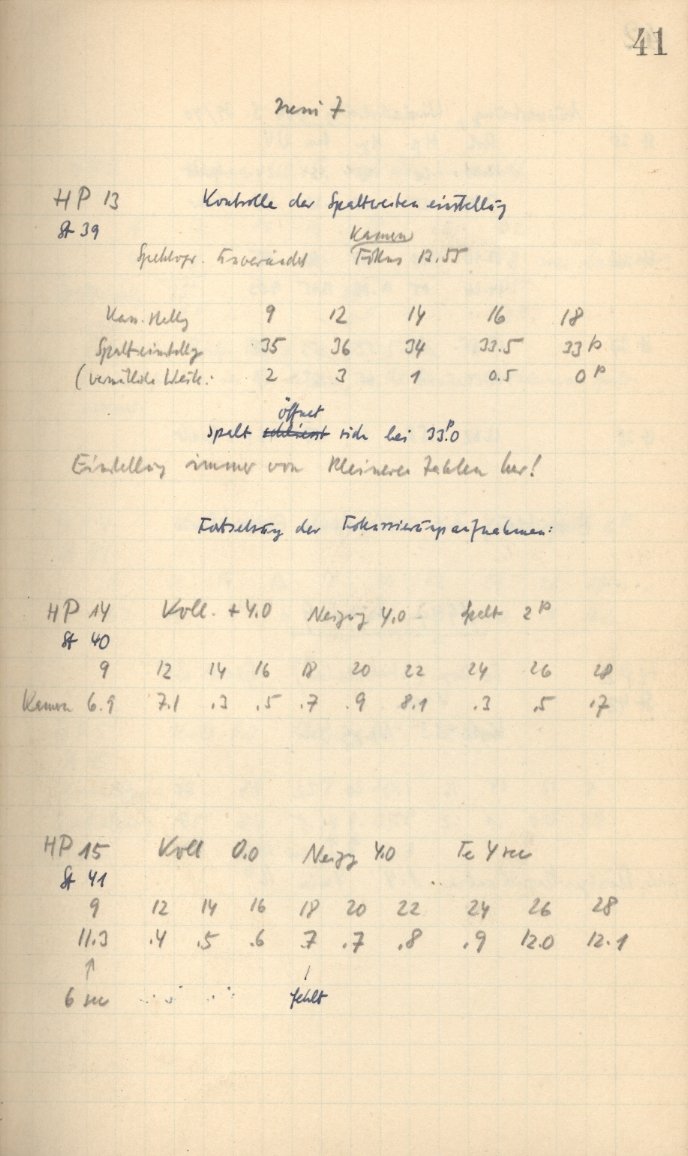 41
Juni 7
HP 13 Kontrolle der Spaltweiten einstellg
St 39 Kamera
Spektogr. unverändert Fokus 12.55
Kass. stellg 9 12 14 16 18
Spalteinstellg 35 36 34 33.5 33p
(vermutliche Weite: 2 3 1 0.5 0p
öffnet
Spalt schliesst sich bei 33p.0
Einstellg immer von kleineren Zahlen her!
Fortsetzung der Fokussierungsaufnahmen:
HP 14 Koll. +4.0 Neigg 4.0 Spalt 2p
St 40
9 12 14 16 18 20 22 24 26 28
Kamera 6.9 7.1 .3 .5 .7 .9 8.1 .3 .5 .7
HP 15 Koll 0.0 Neigg 4.0 Te 4 sec
St 41
9 12 14 16 18 20 22 24 26 28
11.3 .4 .5 .6 .7 .7 .8 .9 12.0 12.1
↑
6 sec fehlt